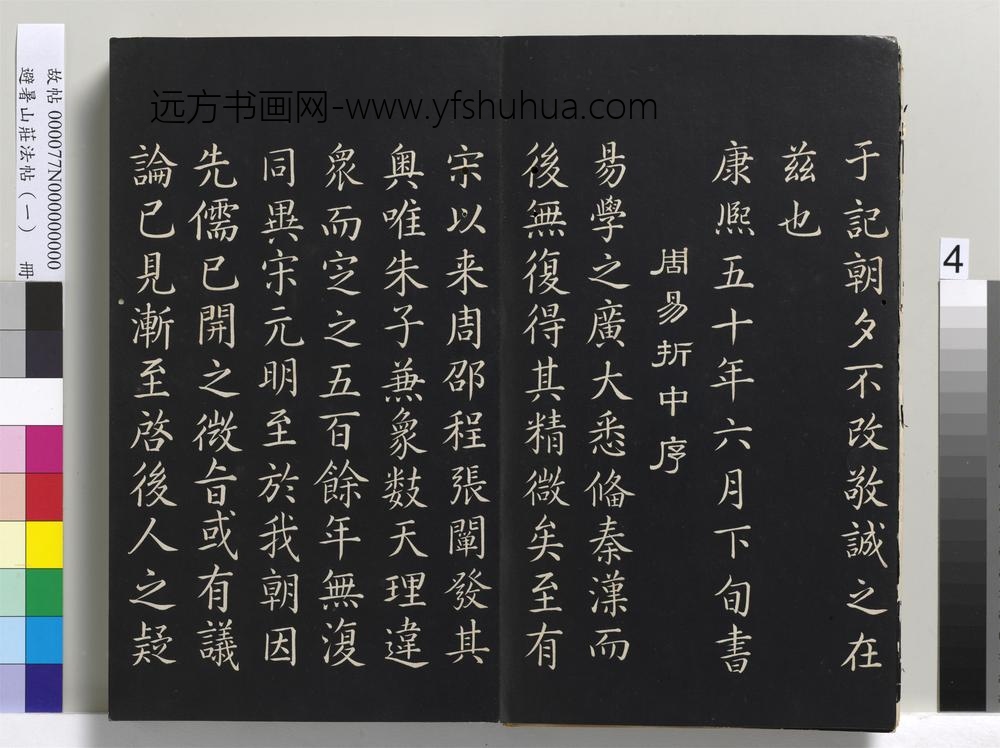 远方书画网-www.yfshuhua.com
于記朝夕不改敬誠之在
茲也
康熙五十年六月下旬書
周易折中序
易學之廣大悉備秦漢而
後無復得其精微矣至有
宋以来周邵程張闡發其
奥唯朱子兼象數天理違
衆而定之五百餘年無復
同異宋元明至於我朝因
先儒已開之微旨或有議
論已見漸至啓後人之疑
故帖 000077N000000000
避暑山莊法帖(一) 冊
4